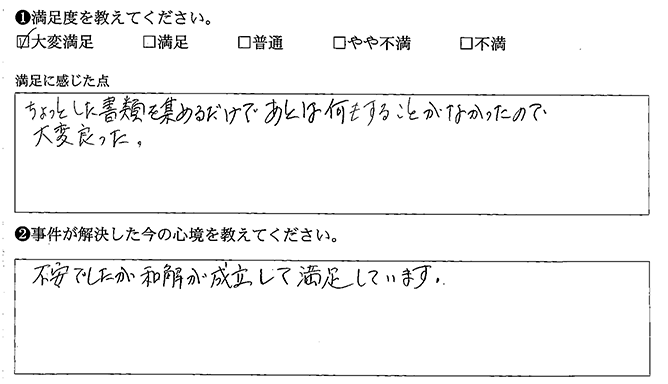 ❶満足度を教えてください。
☑大変満足 □満足 □普通 □やや不満 □不満
満足に感じた点
ちょっとした書類を集めるだけであとは何もすることがなかったので
大変良った。
❷事件が解決した今の心境を教えてください。
不安でしたが和解が成立して満足しています。